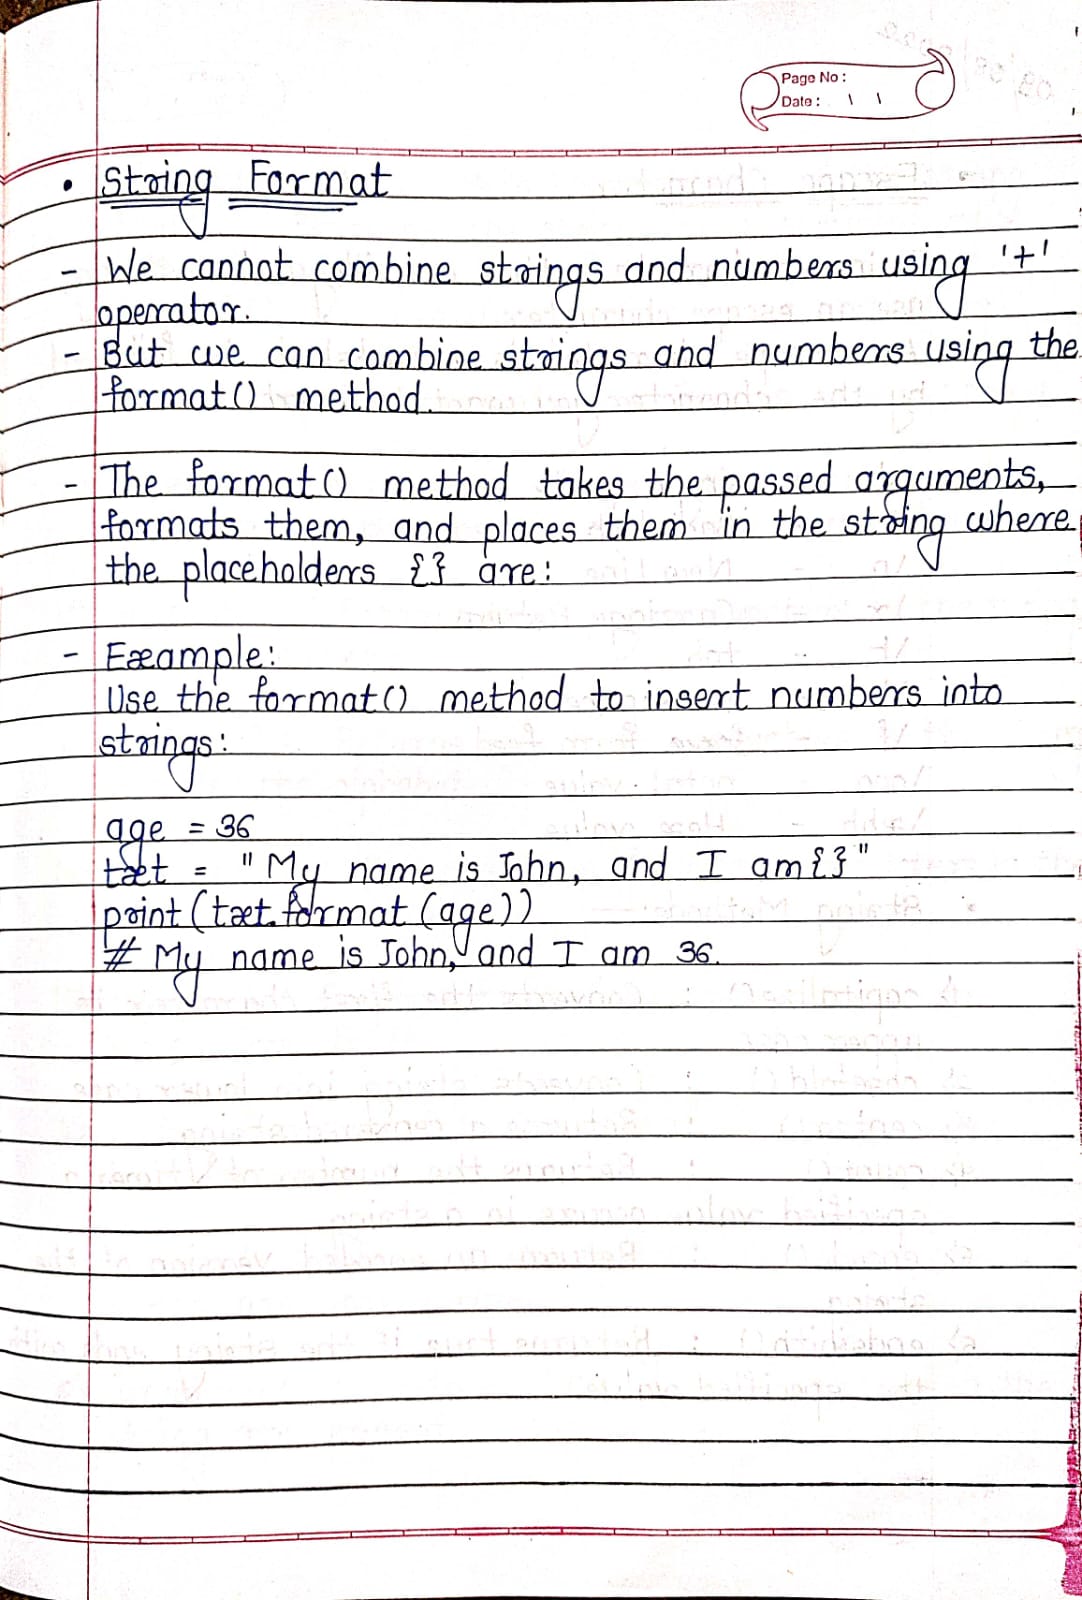 Page No :
Date : \ \
• String Format
- We cannot combine strings and numbers using '+'
operator.
- But we can combine strings and numbers using the
format() method.
- The format() method takes the passed arguments,
formats them, and places them in the string where
the placeholders {} are:
- Example:
Use the format() method to insert numbers into
strings:
age = 36
txt = "My name is John, and I am{}"
print(txt.format(age))
# My name is John, and I am 36.